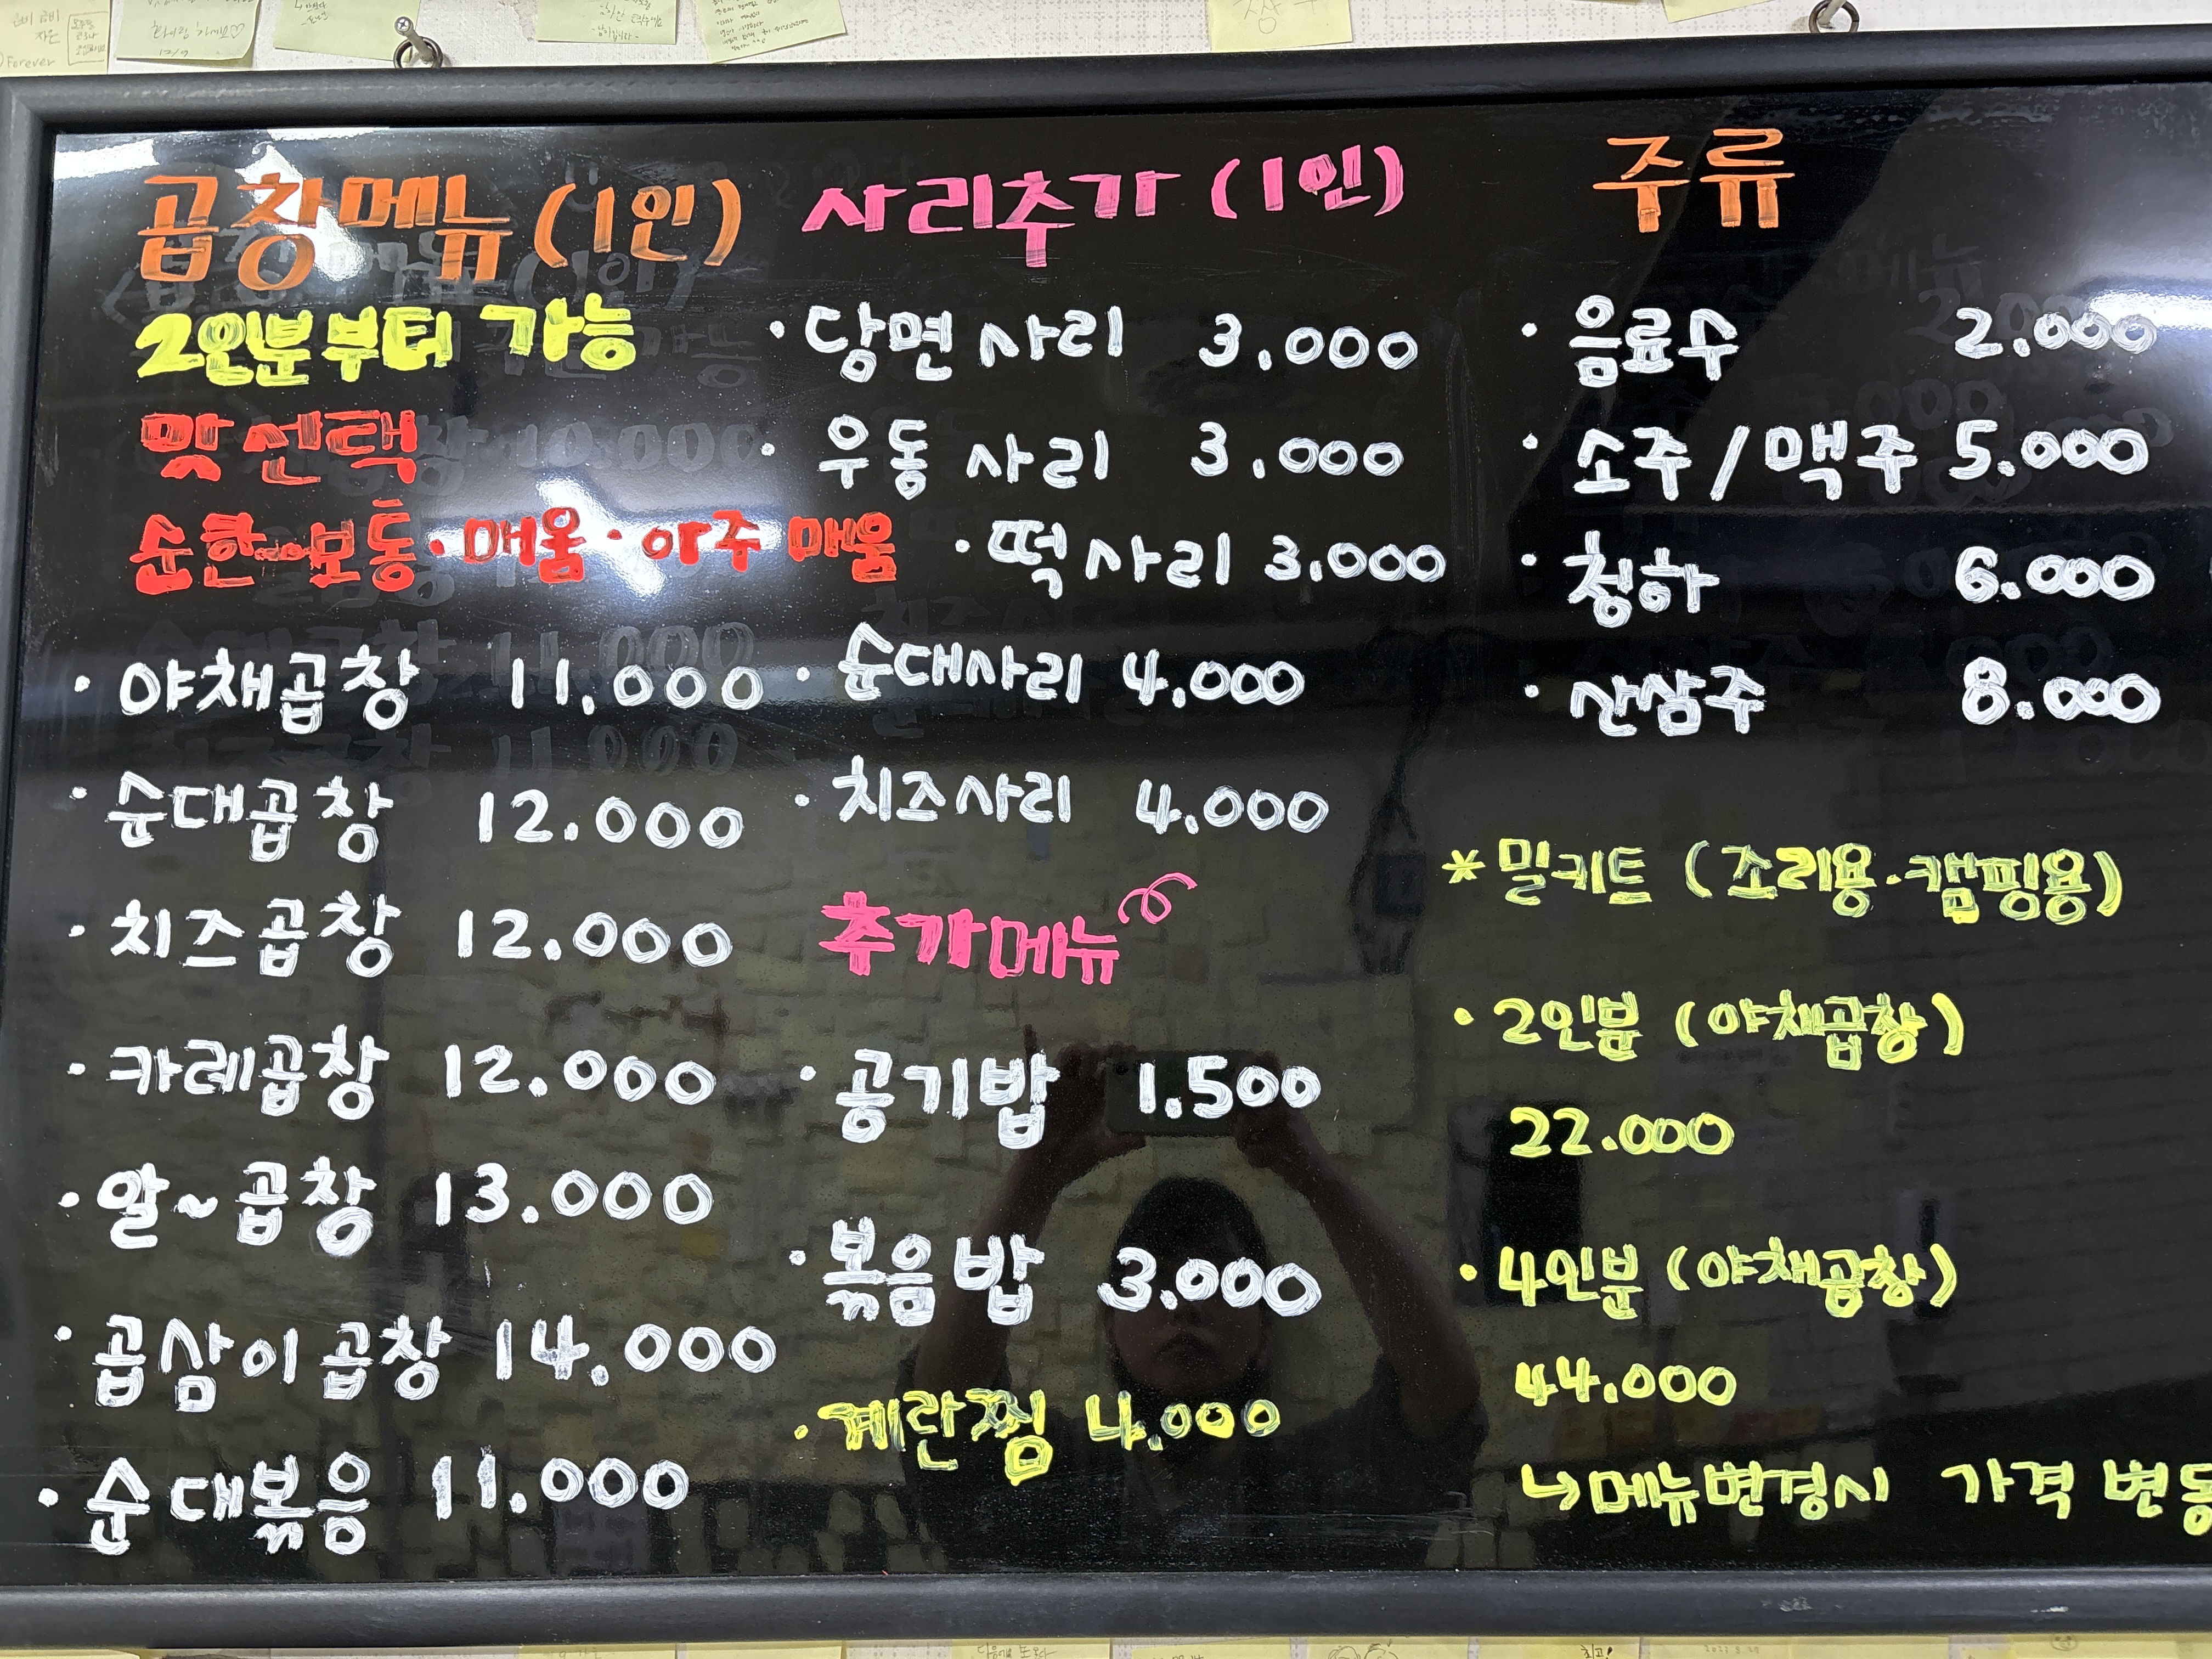 곱창메뉴 (1인)
2인분부터 가능
맛선택
순한·보통·매움·아주 매움
· 야채곱창 11,000
· 순대곱창 12.000
· 치즈곱창 12.000
· 카레곱창 12.000
· 알~곱창 13.000
· 곱삼이곱창 14.000
· 순대볶음 11.000
사리추가 (1인)
· 당면사리 3.000
· 우동사리 3.000
· 떡사리 3.000
· 순대사리 4.000
· 치즈사리 4.000
추가메뉴
· 공기밥 1.500
· 볶음밥 3.000
· 계란찜 4.000
주류
· 음료수 2.000
· 소주/맥주 5.000
· 청하 6.000
· 산삼주 8.000
* 밀키트 (조리용·캠핑용)
· 2인분 (야채곱창)
22.000
· 4인분 (야채곱창)
44.000
↳메뉴변경시 가격 변동
Forever